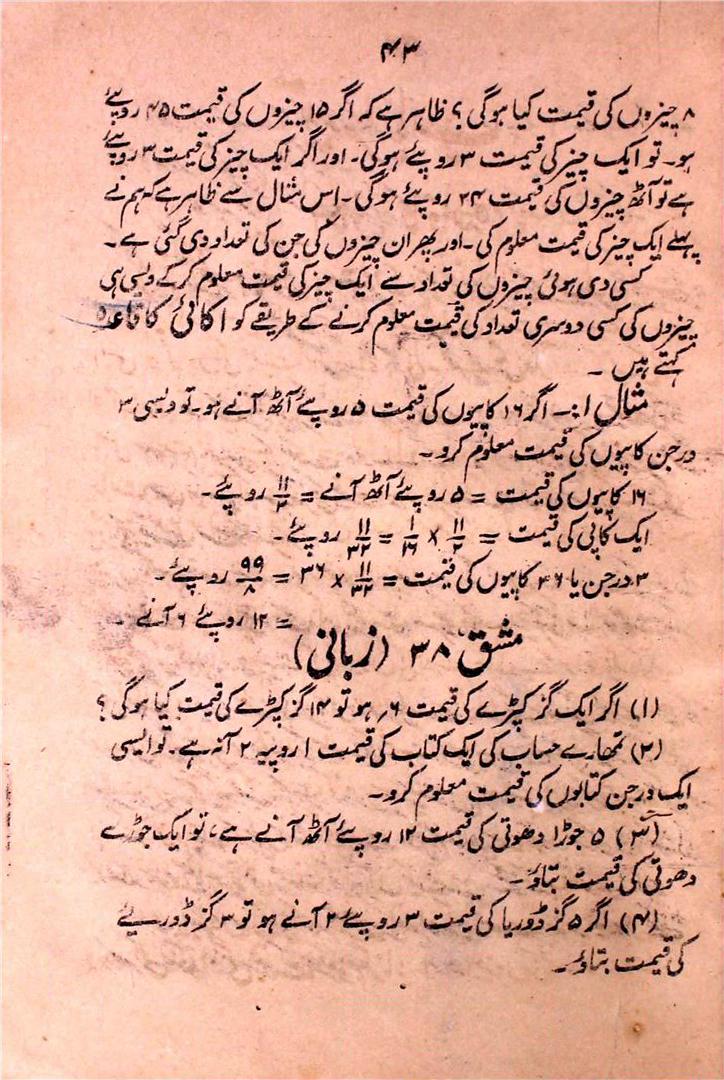 ۴۳
۸ چیزوں کی قیمت کیا ہوگی؟ ظاہر ہے کہ اگر ۱۵ چیزوں کی قیمت ۴۵ روپئے
ہو۔ تو ایک چیز کی قیمت ۳ روپئے ہوگی۔ اور اگر ایک چیز کی قیمت ۳ روپئے
ہے تو آٹھ چیزوں کی قیمت ۲۴ روپئے ہوگی۔ اس مثال سے ظاہر ہے کہ ہم نے
پہلے ایک چیز کی قیمت معلوم کی۔ اور پھر ان چیزوں کی جن کی تعداد دی گئی ہے۔
کسی دی ہوئی چیزوں کی تعداد سے ایک چیز کی قیمت معلوم کرکے ویسی ہی
چیزوں کی کسی دوسری تعداد کی قیمت معلوم کرنے کے طریقے کو اکائی کا قاعدہ
کہتے ہیں۔
مثال ۱:۔ اگر ۱۶ کاپیوں کی قیمت ۵ روپئے آٹھ آنے ہو۔ تو ویسی ۳
درجن کاپیوں کی قیمت معلوم کرو۔
۱۶ کاپیوں کی قیمت = ۵ روپئے آٹھ آنے = ۱۱/۲ روپئے۔
ایک کاپی کی قیمت = ۱۱/۲ × ۱/۱۶ = ۱۱/۳۲ روپئے۔
۳ درجن یا ۳۶ کاپیوں کی قیمت = ۱۱/۳۲ × ۳۶ = ۹۹/۸ روپئے۔
= ۱۲ روپئے ۶ آنے۔
مشق ۳۸ (زبانی)
(۱) اگر ایک گز کپڑے کی قیمت ۶؍ ہو تو ۱۴ گز کپڑے کی قیمت کیا ہوگی؟
(۲) تمھارے حساب کی ایک کتاب کی قیمت ۱ روپیہ ۲ آنہ ہے۔ تو ایسی
ایک درجن کتابوں کی قیمت معلوم کرو۔
(۳) ۵ جوڑا دھوتی کی قیمت ۱۲ روپئے آٹھ آنے ہے، تو ایک جوڑے
دھوتی کی قیمت بتاؤ۔
(۴) اگر ۵ گز ڈوریا کی قیمت ۳ روپئے ۲ آنے ہو تو ۳ گز ڈوریئے
کی قیمت بتاؤ۔